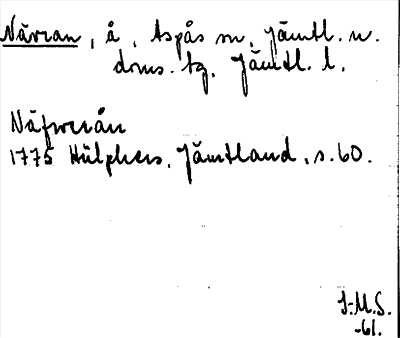 Nävran, å, Aspås sn, Jämtl. n.
doms. tg, Jämtl. l.
Näfwerån
1775 Hülphers, Jämtland, s. 60.
I-M.S.
-61.